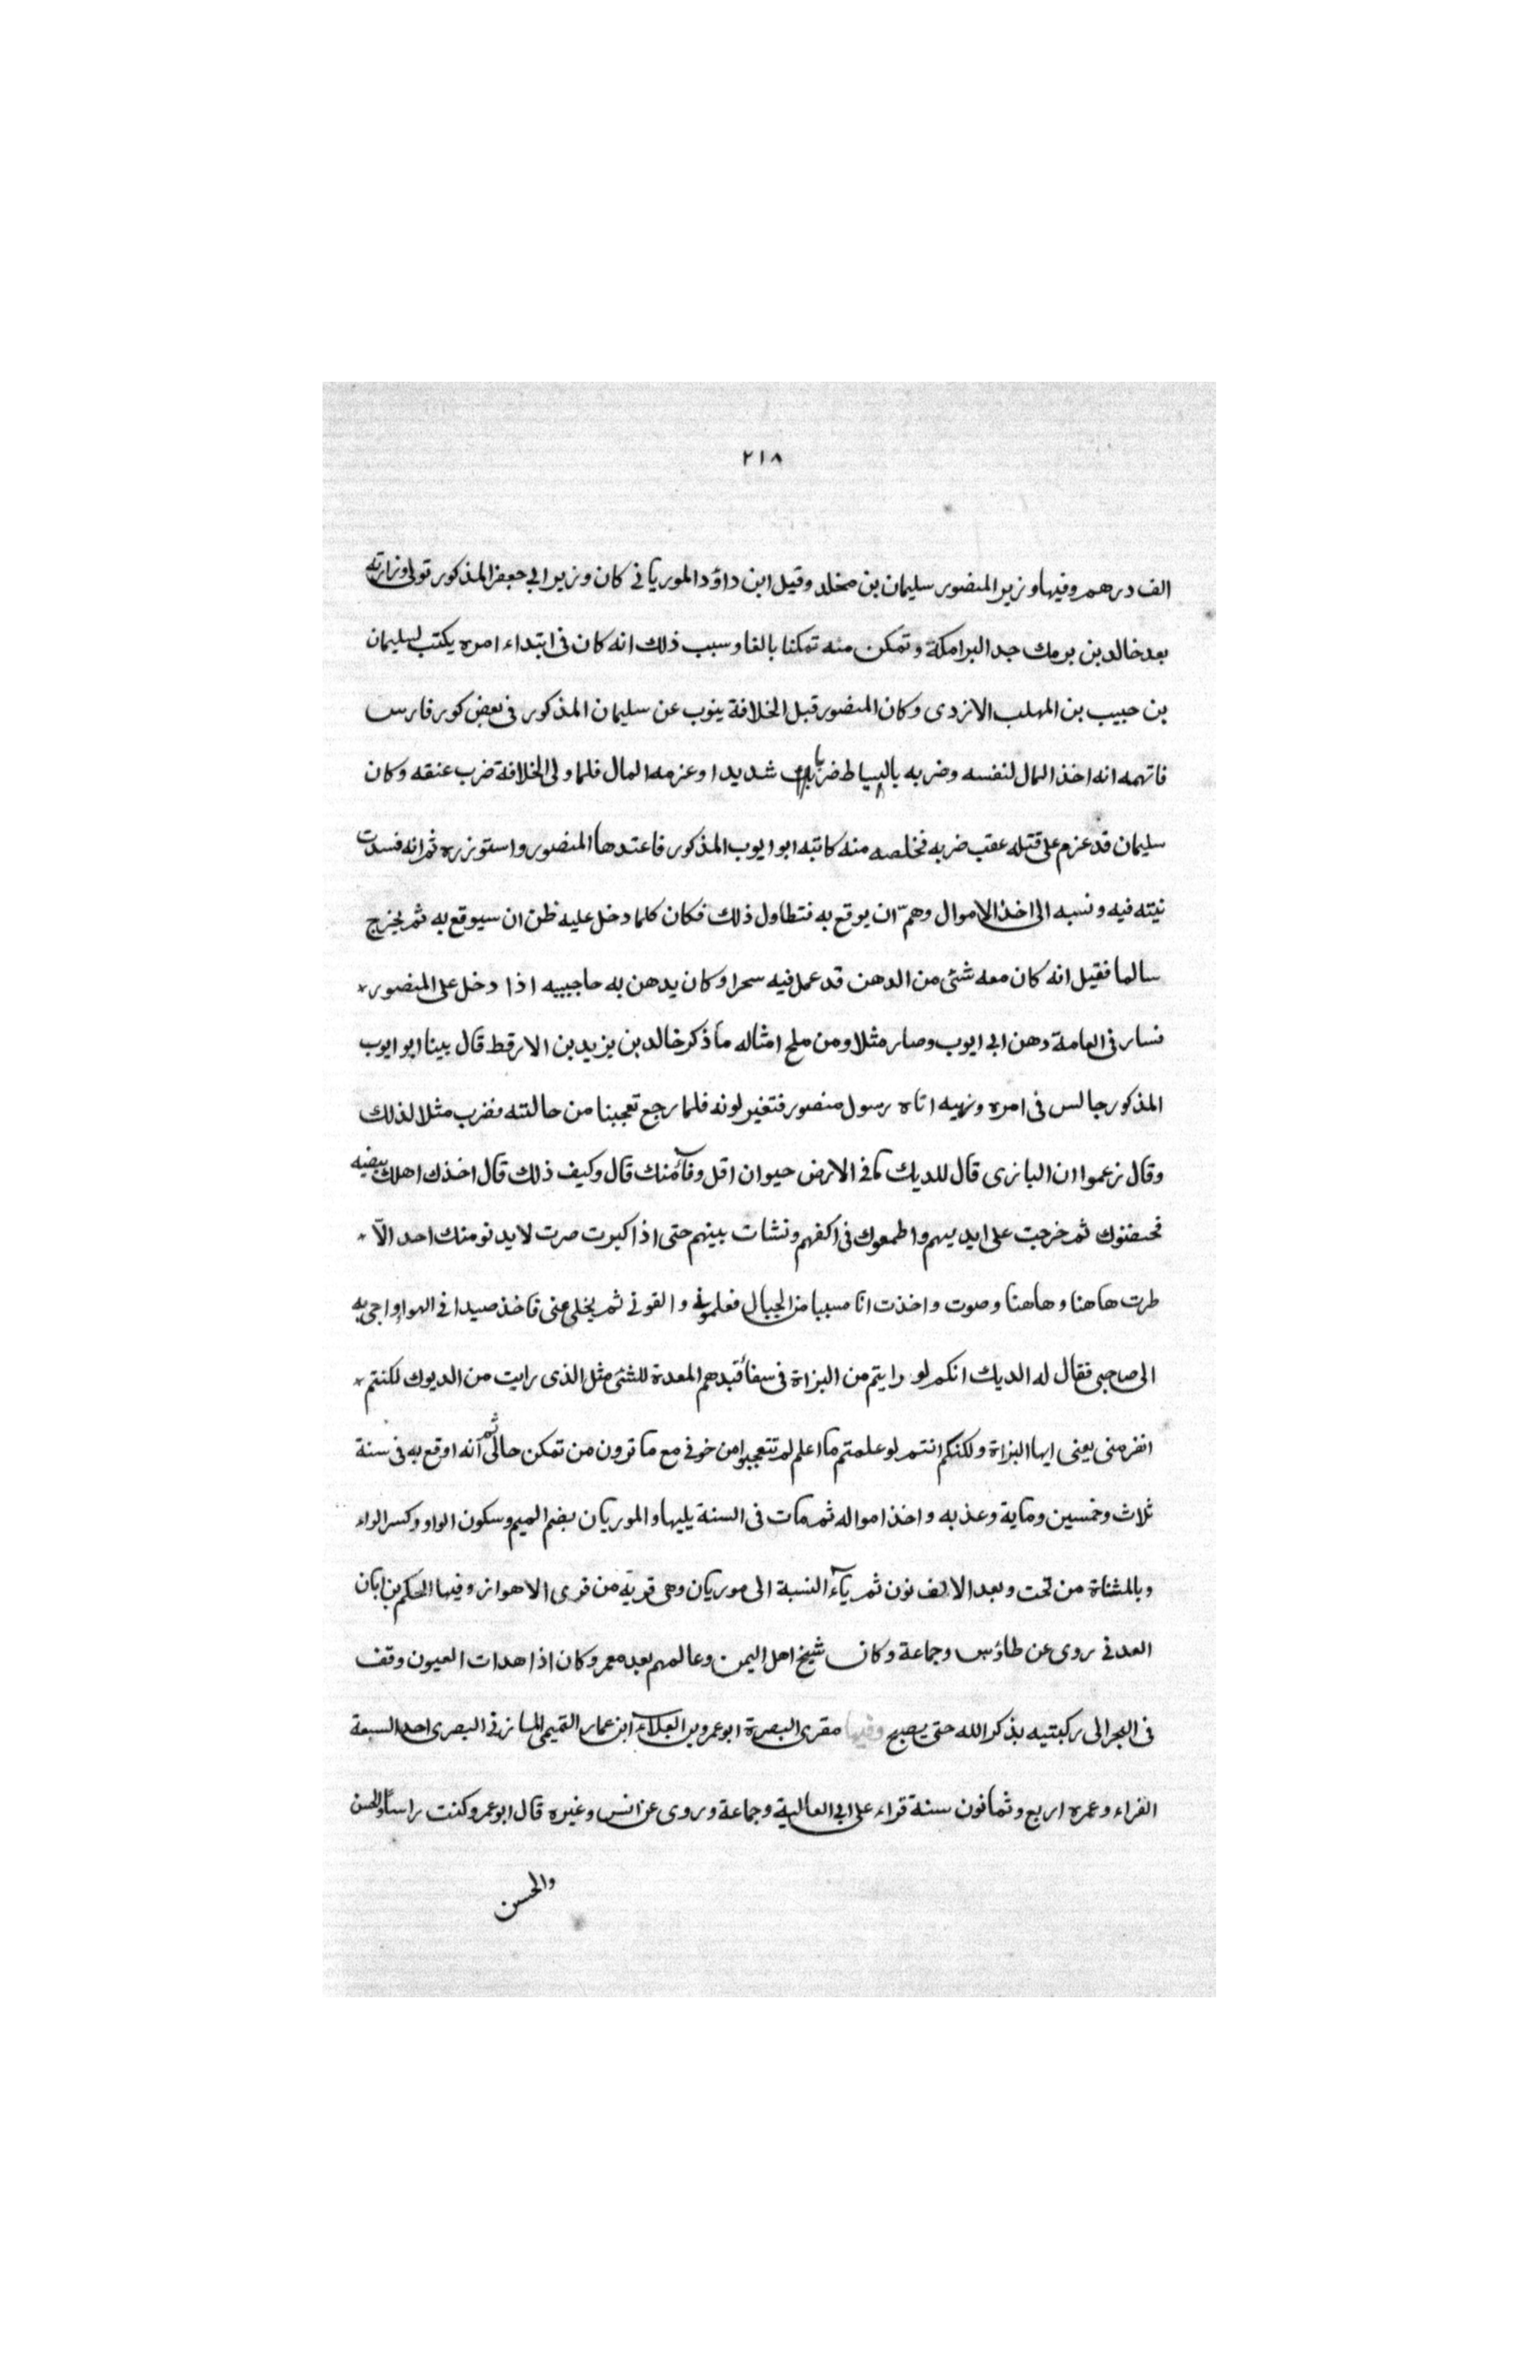 ٢١٨
الف درهم وفيها وزير المنصور سليمان بن مخلد وقيل ابن داؤد الموريانى كان وزير ابي جعفر المذكور تولى وزارته
بعد خالد بن برمك جد البرامكة وتمكن منه تمكنا بالغا وسبب ذلك انه كان فى ابتداء امره يكتب لسليمان
بن حبيب بن المهلب الازدى وكان المنصور قبل الخلافة ينوب عن سليمان المذكور فى بعض كور فارس
فاتهمه انه اخذ المال لنفسه وضربه بالسياط ضربا شديدا وغرمه المال فلما ولى الخلافة ضرب عنقه وكان
سليمان قد عزم على قتله عقب ضربه فخلصه منه كاتبه ابو ايوب المذكور فاعتدها المنصور واستوزره ثم انه فسدت
نيته فيه ونسبه الى اخذ الاموال وهمّ ان يوقع به فتطاول ذلك فكان كلما دخل عليه ظن ان سيوقع به ثم يخرج
سالما فقيل انه كان معه شئ من الدهن قد عمل فيه سحرا وكان يدهن به حاجبيه اذا دخل على المنصور
فسار فى العامة دهن ابى ايوب وصار مثلا ومن ملح امثاله مأذكر خالد بن يزيد بن الارقط قال بينا ابو ايوب
المذكور جالس فى امره ونهيه اتاه رسول منصور فتغير لونه فلما رجع تعجبنا من حالته فضرب مثلا لذلك
وقال زعموا ان البازى قال للديك ما فى الارض حيوان اقل وفآء منك قال وكيف ذلك قال اخذك اهلك بيضه
فحضنوك ثم خرجت على ايديهم واطعموك فى اكفهم ونشات بينهم حتى اذا كبرت صرت لا يدنو منك احد الّا
طرت هاهنا وهاهنا وصوت واخذت انا مسببا من الجبال فعلمونى والفونى ثم يخلى عنى فاخذ صيدا فى الهواء واجى به
الى صاحبى فقال له الديك انكم لو رايتم من البزاة فى سفأفيدهم المعدة للشئ مثل الذى رايت من الديوك لكنتم
انفر منى يعنى ايها البزاة ولكنكم انتم لو علمتم ما اعلم لم تتعجبوا من خوفى مع ما ترون من تمكن حالى ثم انه اوقع به فى سنة
ثلاث وخمسين وماية وعذبه واخذ امواله ثم مات فى السنة يليها والموريان بضم الميم وسكون الواو وكسر الراء
وبالمثناة من تحت وبعد الالف نون ثم ياء النسبة الى موريان وهى قرية من قرى الاهواز وفيها الحكم بن ابان
العدنى روى عن طاؤس وجماعة وكان شيخ اهل اليمن وعالمهم بعد معمر وكان اذا هدات العيون وقف
فى البحر الى ركبتيه بذكر الله حتى يصبح وفيها مقرى البصرة ابو عمرو بن العلاء ابن عمار التميمى المازنى البصرى احد السبعة
القراء وعمره اربع وثمانون سنة قراء على ابى العالية وجماعة وروى عن انس وغيره قال ابو عمرو كنت راسا والحسن
والحسن